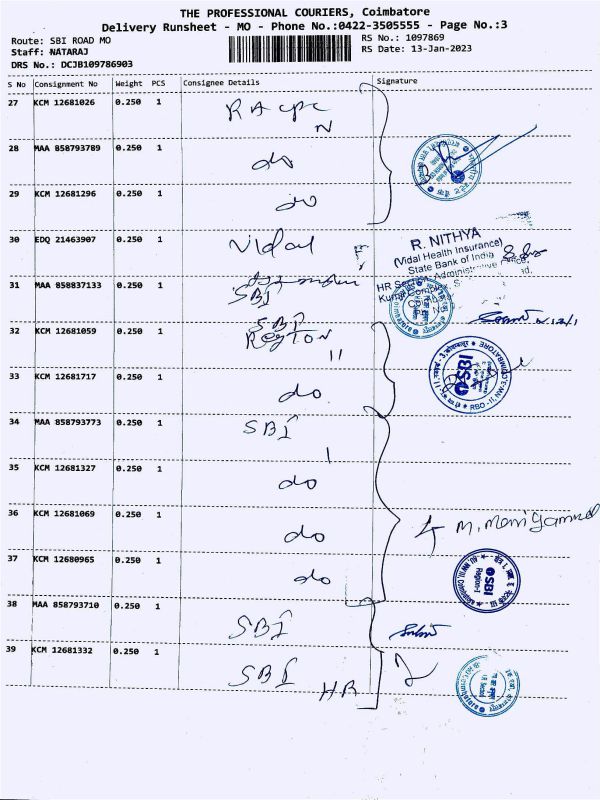 THE PROFESSIONAL COURIERS, Coimbatore
Delivery Runsheet - MO - Phone No.:0422-3505555 - Page No.:3
Route: SBI ROAD MO RS No.: 1097869
Staff: NATARAJ RS Date: 13-Jan-2023
DRS No.: DCJB109786903
S No Consignment No Weight PCS Consignee Details Signature
27 KCM 12681026 0.250 1 RACPC
N
28 MAA 858793789 0.250 1 do
29 KCM 12681296 0.250 1 do
30 EDQ 21463907 0.250 1 Vidal
R. NITHYA
(Vidal Health Insurance)
State Bank of India
31 MAA 858837133 0.250 1
SBI
HR Section, Administrative
32 KCM 12681059 0.250 1 SBI
Region
II
SBI
RBO - II, NW-3, COIMBATORE
33 KCM 12681717 0.250 1 do
34 MAA 858793773 0.250 1 SBI
I
35 KCM 12681327 0.250 1 do
36 KCM 12681069 0.250 1 do
37 KCM 12680965 0.250 1 do
SBI
Region-I
38 MAA 858793710 0.250 1 SBI
39 KCM 12681332 0.250 1 SBI
HR